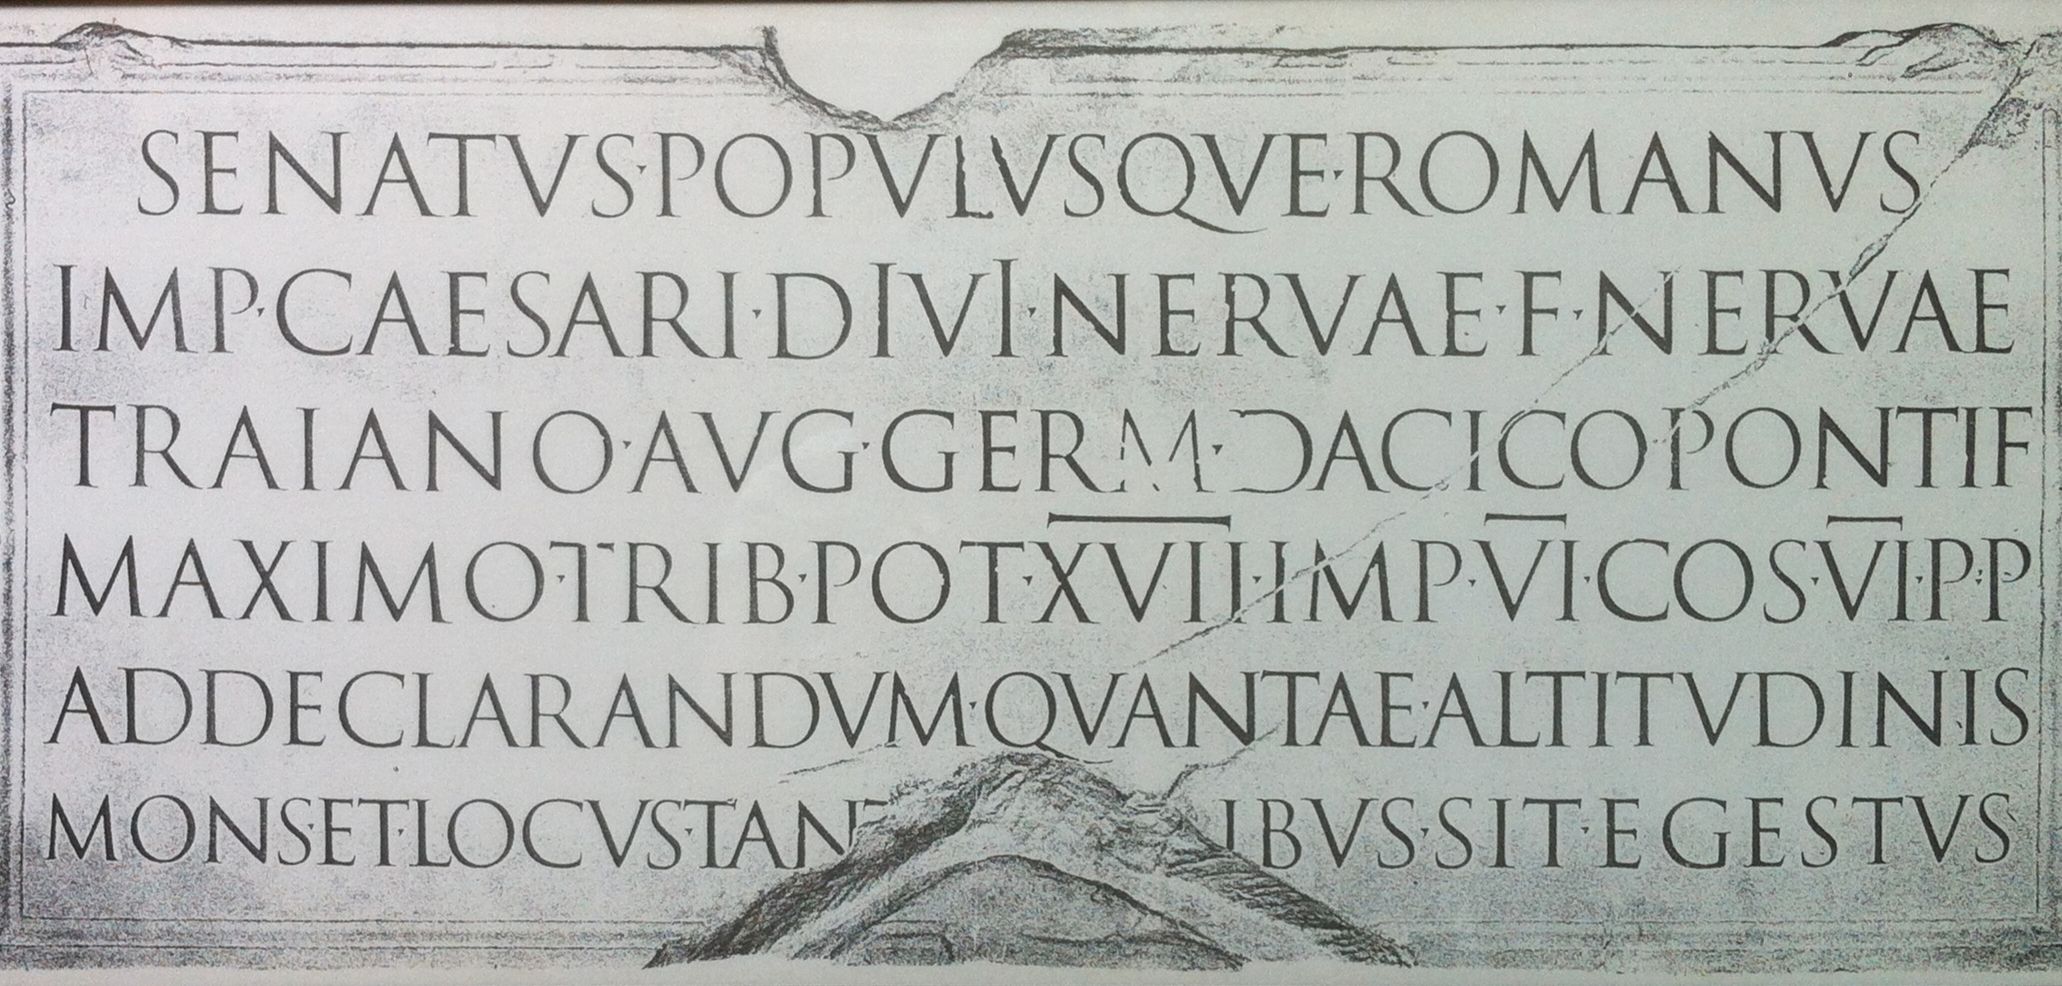 SENATVS·POPVLVSQVE·ROMANVS
IMP·CAESARI·DIVI·NERVAE·F·NERVAE
TRAIANO·AVG·GERM·DACICO·PONTIF
MAXIMO·TRIB·POT·XVIII·IMP·VI·COS·VI·P·P
ADDECLARANDVM·QVANTAE·ALTITVDINIS
MONS·ET·LOCVS·TAN IBVS·SIT·EGESTVS